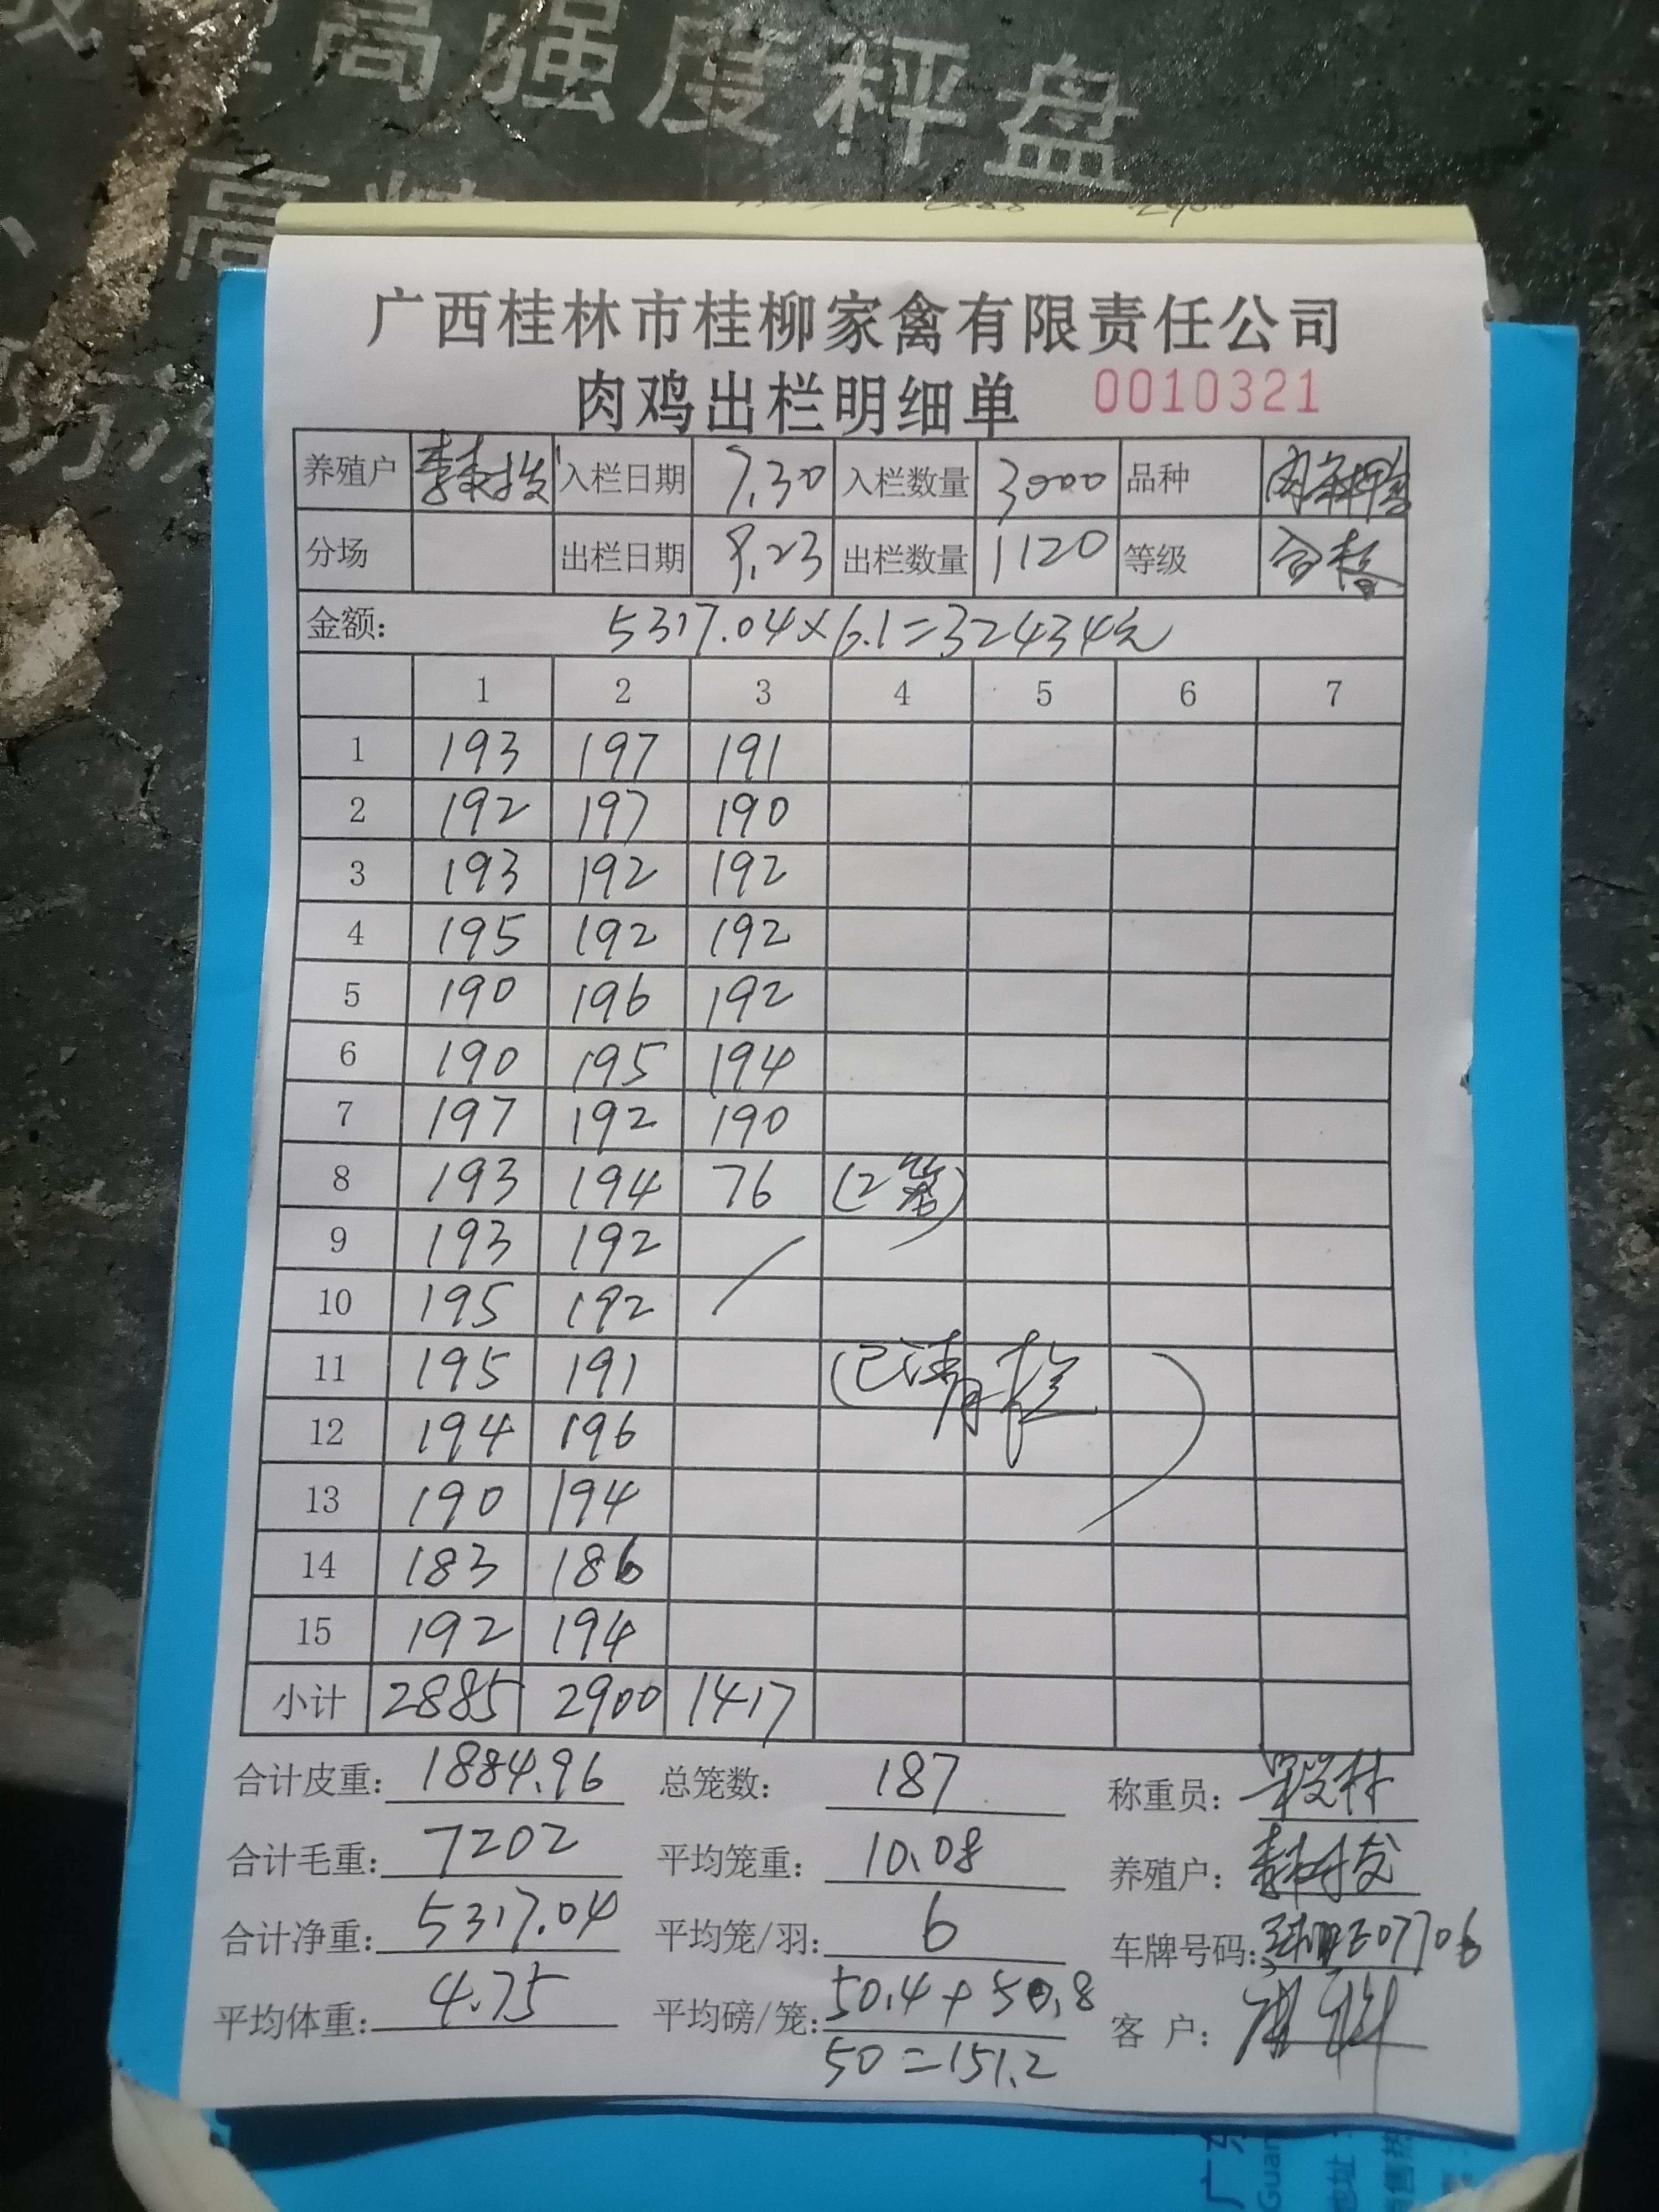 高强度秤盘
高精
广西桂林市桂柳家禽有限责任公司
肉鸡出栏明细单 0010321
养殖户 入栏日期 7.30 入栏数量 3000 品种
分场 出栏日期 9.23 出栏数量 1120 等级 合格
金额: 5317.04×6.1=32434元
1 2 3 4 5 6 7
1 193 197 191
2 192 197 190
3 193 192 192
4 195 192 192
5 190 196 192
6 190 195 194
7 197 192 190
8 193 194 76 (2笼)
9 193 192
10 195 192
11 195 191 (已清栏)
12 194 196
13 190 194
14 183 186
15 192 194
小计 2885 2900 1417
合计皮重: 1884.96 总笼数: 187 称重员:
合计毛重: 7202 平均笼重: 10.08 养殖户:
合计净重: 5317.04 平均笼/羽: 6 车牌号码: 07706
平均体重: 4.75 平均磅/笼: 50.4+50.8 客户:
50=151.2
广东
Guan
地址:
销售热